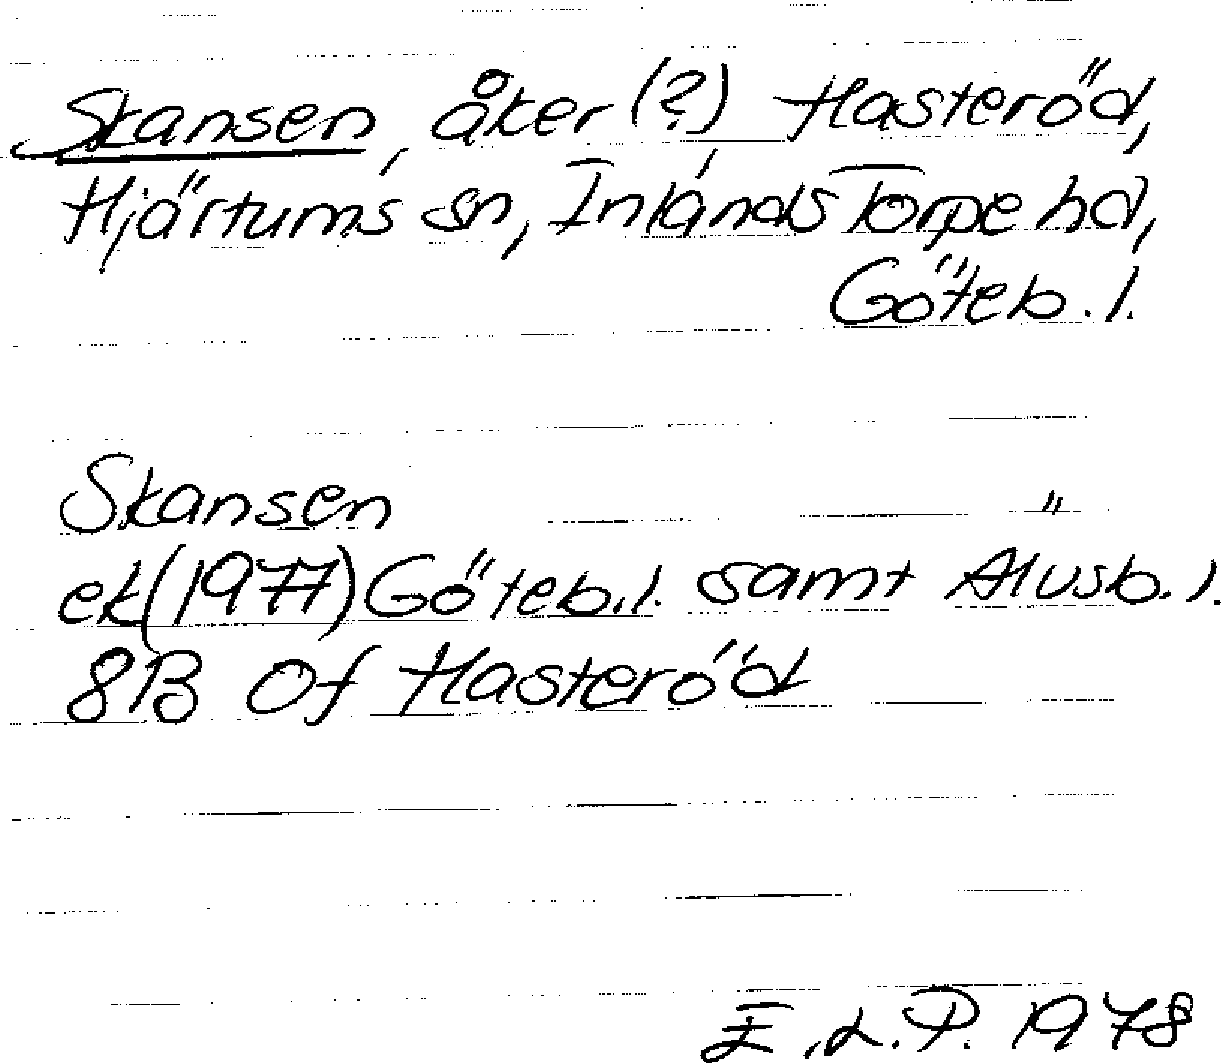 Skansen, åker (?) Hasteröd,
Hjärtums sn, Inlands Torpe hd,
Göteb. l.
Skansen
ek (1977) Göteb. l. samt Älvsb. l.
8B 0f Hasteröd
E.L.P. 1978